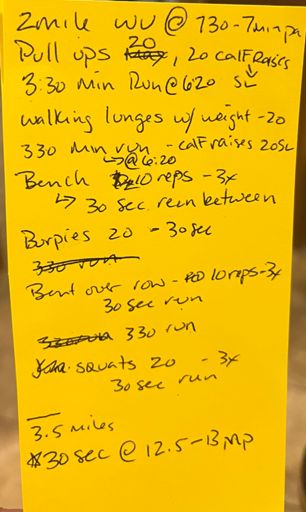 2mile WU @ 730-7min pa
Pull ups 20, 20 calf Raises
3:30 min Run @ 620 SL
walking lunges w/ weight -20
330 min run - calf raises 20SL
@ 6:20
Bench 10 reps - 3x
30 sec between
Burpies 20 - 30sec
330 run
Bent over row - 10 reps-3x
30 sec run
330 run
squats 20 - 3x
30 sec run
3.5 miles
30 sec @ 12.5-13 mp